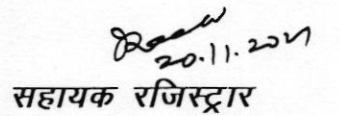 20.11.2021
सहायक रजिस्ट्रार